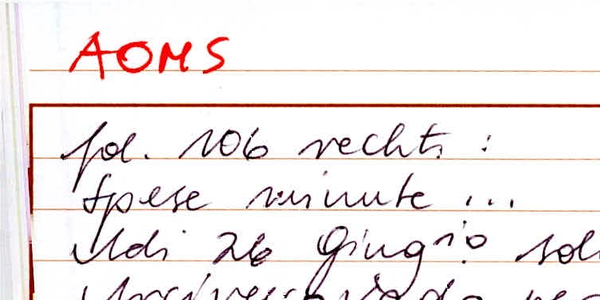 AOMS
fol. 106 rechts :
Spese minute ...
Adi 26 Giugno